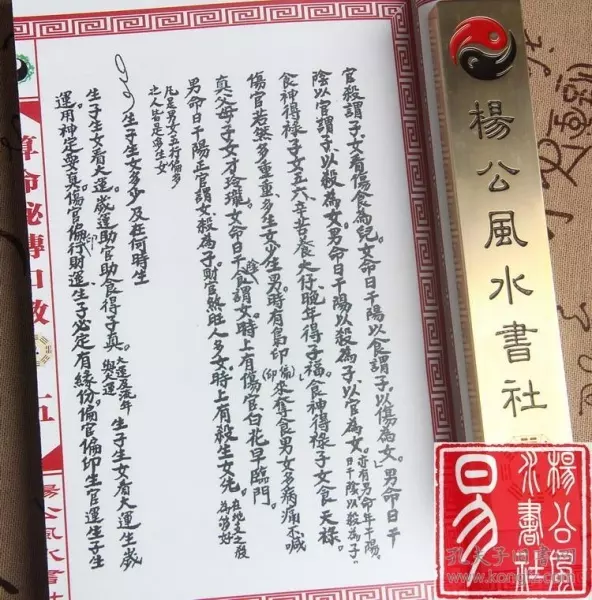 官殺謂子女看傷食為兒。女命日干陽以食謂子以傷為女。男命日干
陰以官謂子、以殺為女。男命日干陽以殺為子以官為女。亦有男命年干陽
日干陰以殺為子
食神得祿子女五六、辛苦養大仔晚年得子福。食神得祿子女食天祿。
傷官若然多重重、多生女少生男。時有梟印來奪食男女多病痛不喊
(偏印)
真父母子女才玲瓏。女命日干陰食謂女。時上有傷官白花早臨門。
男命日干陽正官謂女殺為子財官煞旺人多女。時上有殺生女先。
凡是男女五行偏多
之人皆是多生女
生子生女多少及在何時生
生子生女看大運。歲運助官助食得子真。大運及流年
與大運
生子生女看大運生歲
運用神定要真傷官偏印行財運生子必定有緣份。偏官偏印生官運生子生
算命秘傳口訣
五
楊公風水書社
楊公風水書社
易
楊公風
水書社
孔夫子旧书网
www.kongfz.com